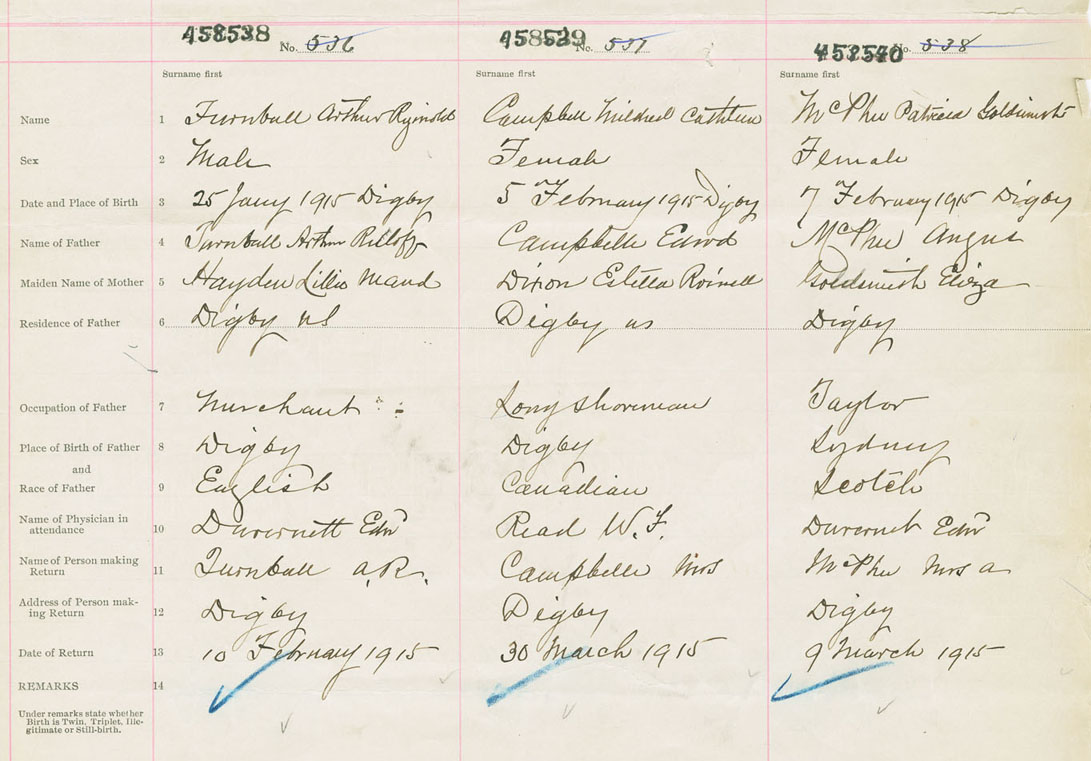 458538 No. 536 458539 No. 537 458540 No. 538
Surname first Surname first Surname first
Name 1 Turnball Arthur Campbell Mildred McPhee Patricia
Sex 2 Male Female Female
Date and Place of Birth 3 25 Jany 1915 Digby 5 February 1915 Digby 7 February 1915 Digby
Name of Father 4 Turnball Arthur Campbelle Edwd McPhee Angus
Maiden Name of Mother 5 Hayden Lillie Maud Dixon Estella Goldsmith Eliza
Residence of Father 6 Digby NS Digby ns Digby
Occupation of Father 7 Merchant Longshoreman Taylor
Place of Birth of Father 8 Digby Digby Sydney
and
Race of Father 9 English Canadian Scotch
Name of Physician in attendance 10 Duvernett Edw Read W. F. Duvernet Edw
Name of Person making Return 11 Turnball A.R. Campbelle Mrs McPhee Mrs A
Address of Person mak-ing Return 12 Digby Digby Digby
Date of Return 13 10 February 1915 30 March 1915 9 March 1915
REMARKS 14
Under remarks state whether
Birth is Twin, Triplet, Ille-
gitimate or Still-birth.